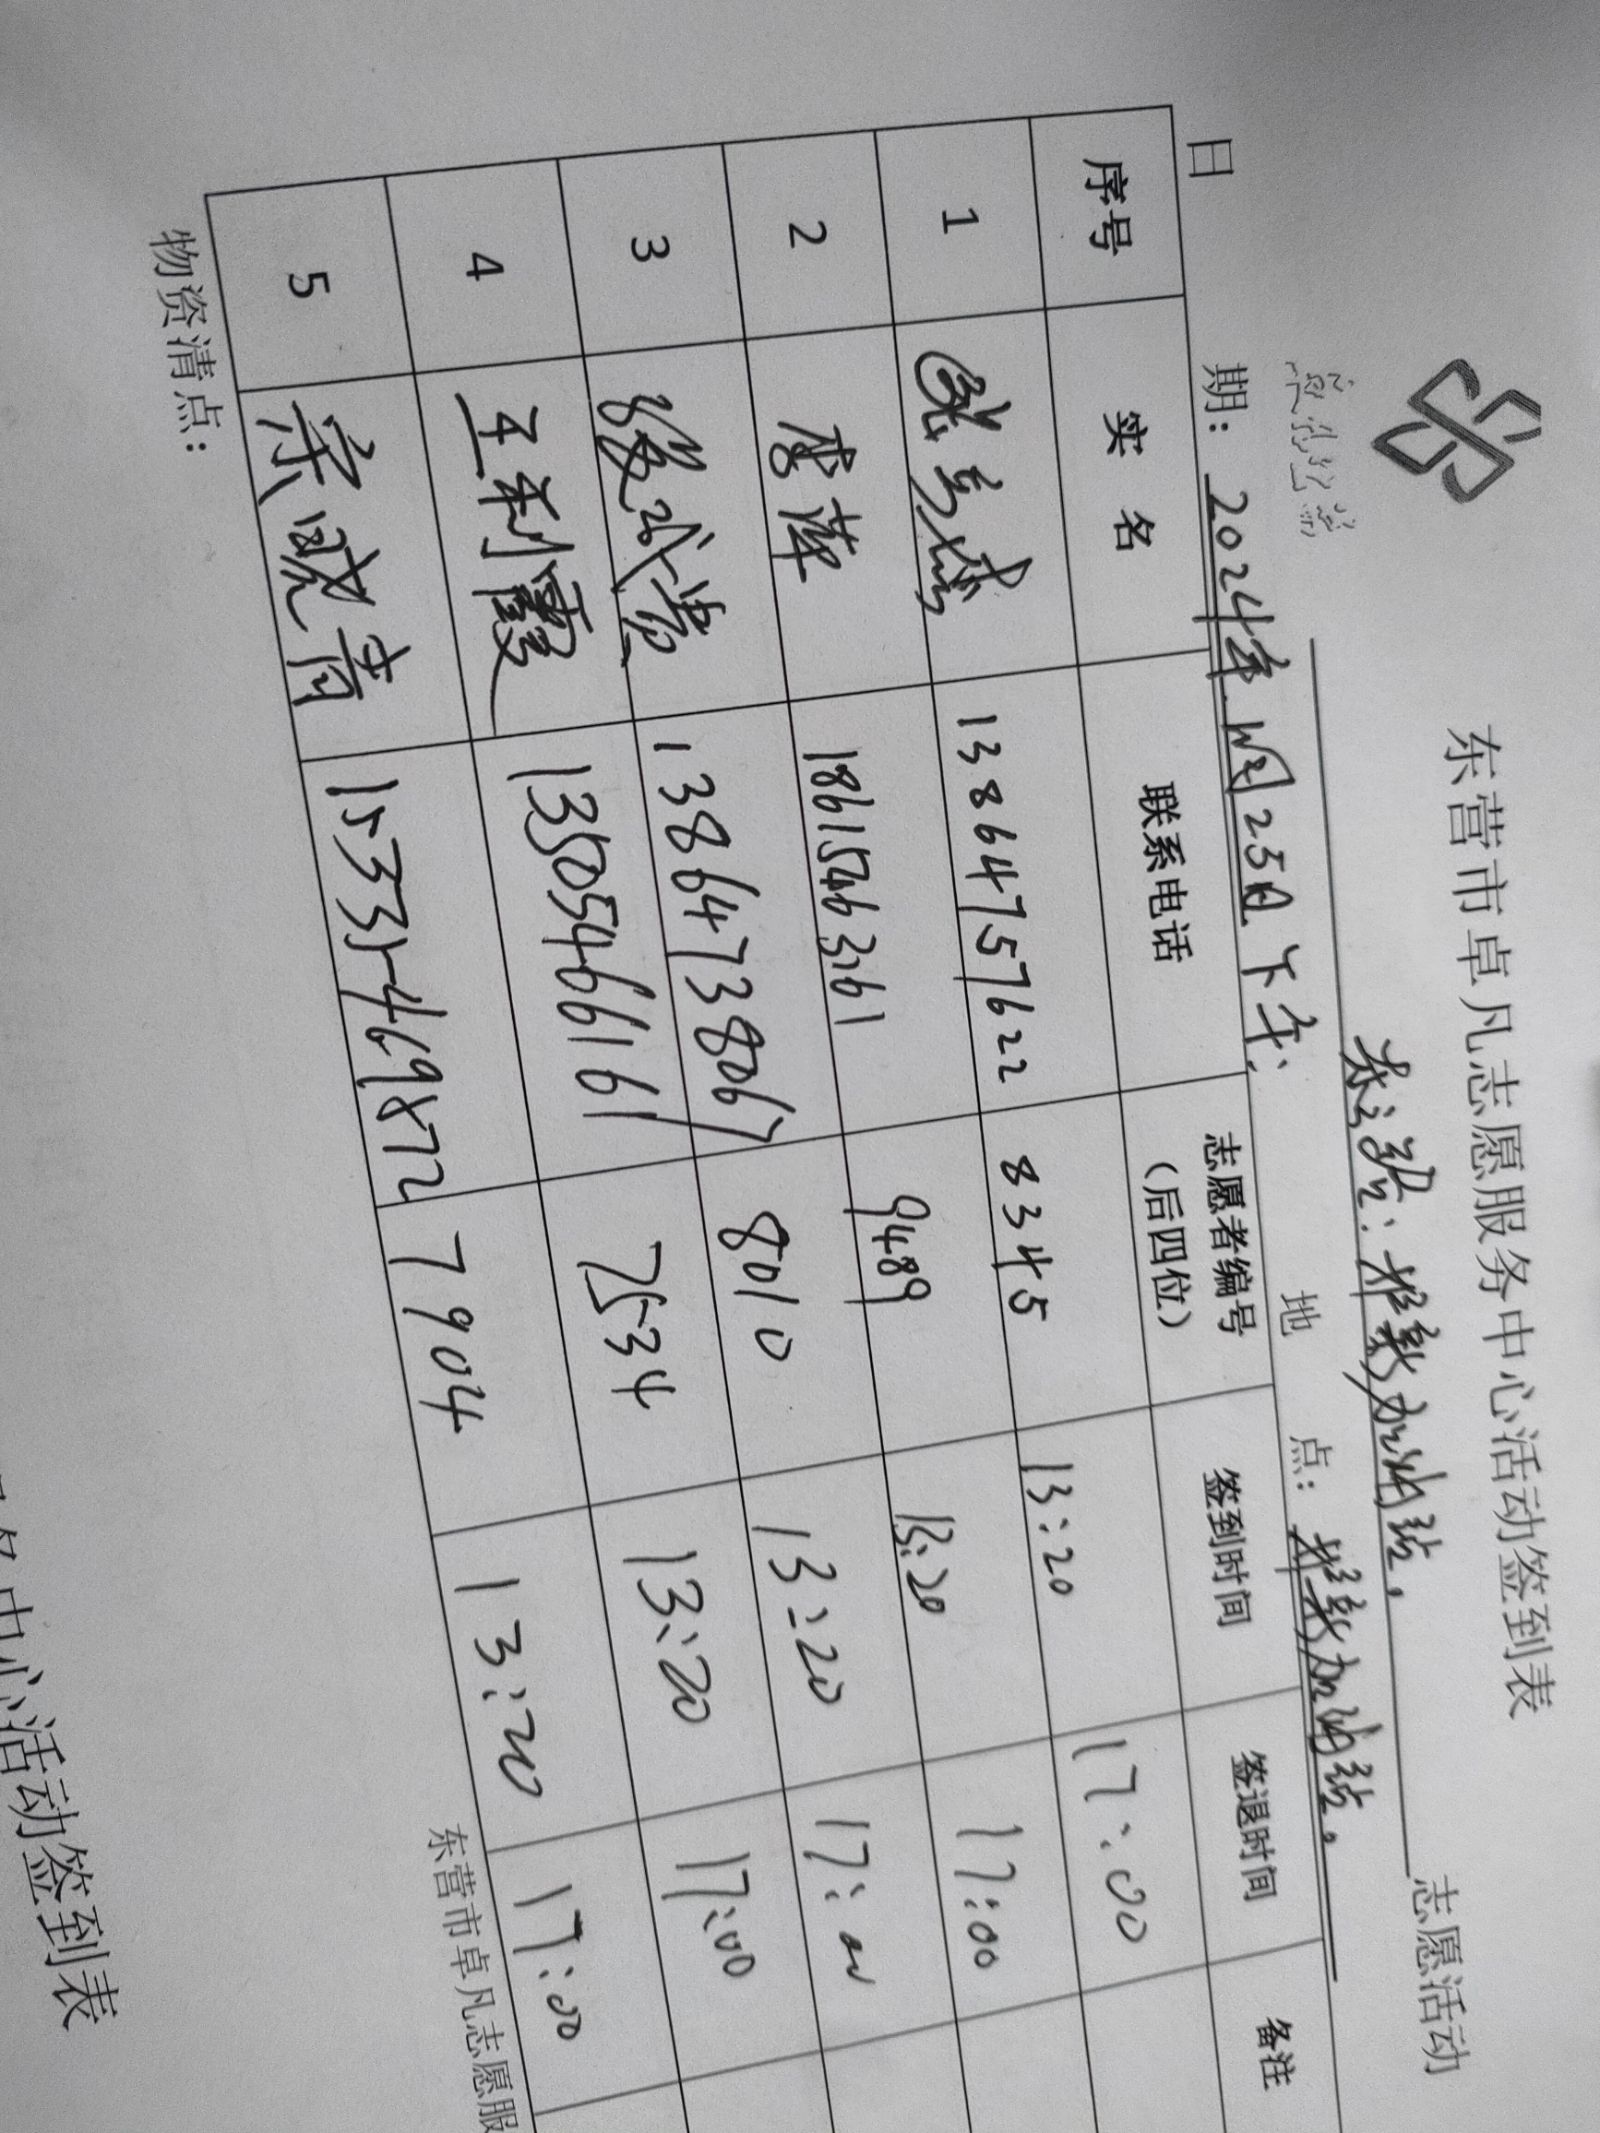 东营市卓凡志愿服务中心活动签到表
加油站. 志愿活动
日 期: 2024年 月25日下午. 地 点: 加油站.
序号 实 名 联系电话 志愿者编号(后四位) 签到时间 签退时间 备注
1 13864757622 8345 13:20 17:00
2 李萍 18615463161 9489 13:20 17:00
3 13864738067 8010 13:20 17:00
4 王利霞 13505466161 7534 13:20 17:00
5 宋晓菁 15335469872 7904 13:20 17:00
物资清点:
东营市卓凡志愿服
中心活动签到表